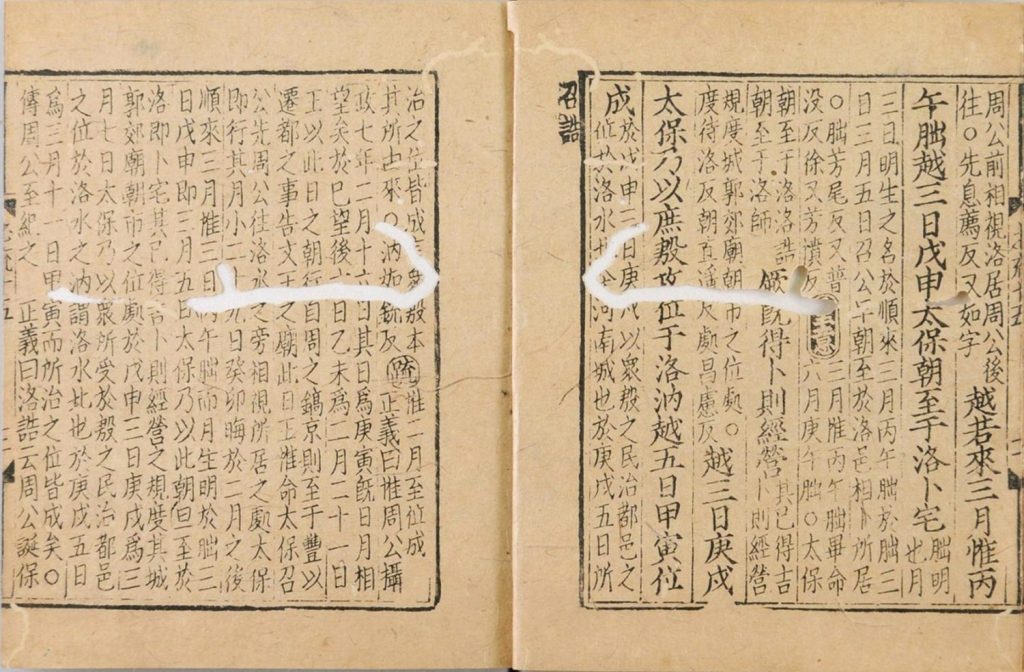 周公前相視洛居周公後
往○先息薦反又如字
越若來三月惟丙
午朏越三日戊申太保朝至于洛卜宅
朏明
也月
三日明生之名於順來三月丙午朏於朏三
日三月五日召公早朝至於洛邑相卜所居
○朏芳尾反又普
没反徐又芳憒反
三月惟丙午朏畢命
六月庚午朏○太保
朝至于洛洛誥
朝至于洛師
厥既得卜則經營
其已得吉
卜則經營
規度城郭郊廟朝市之位處○
度待洛反朝直遥反處昌慮反
越三日庚戌
太保乃以庶殷攻位于洛汭越五日甲寅位
成
於戊申三日庚戌以衆殷之民治都邑之
位於洛水北今河南城也於庚戌五日所
召誥
治之位皆成言衆殷本
其所由來○汭如銳反
疏
惟二月至位成
正義曰惟周公攝
政七年二月十六日其日爲庚寅旣日月相
望矣於已望後六日乙未爲二月二十一日
王以此日之朝行自周之鎬京則至于豐以
遷都之事告文王之廟此日王惟命太保召
公先周公往洛水之旁相視所居之處太保
即行其月小二十九日癸卯晦於二月之後
順來三月惟三日丙午朏而月生明於朏三
日戊申即三月五日太保乃以此朝旦至於
洛即卜宅其已得吉卜則經營之規度其城
郭郊廟朝市之位處於戊申三日庚戌爲三
月七日太保乃以衆所受於殷之民治都邑
之位於洛水之汭謂洛水北也於庚戌五日
爲三月十一日甲寅而所治之位皆成矣○
傳周公至紀之 正義曰洛誥云周公誕保